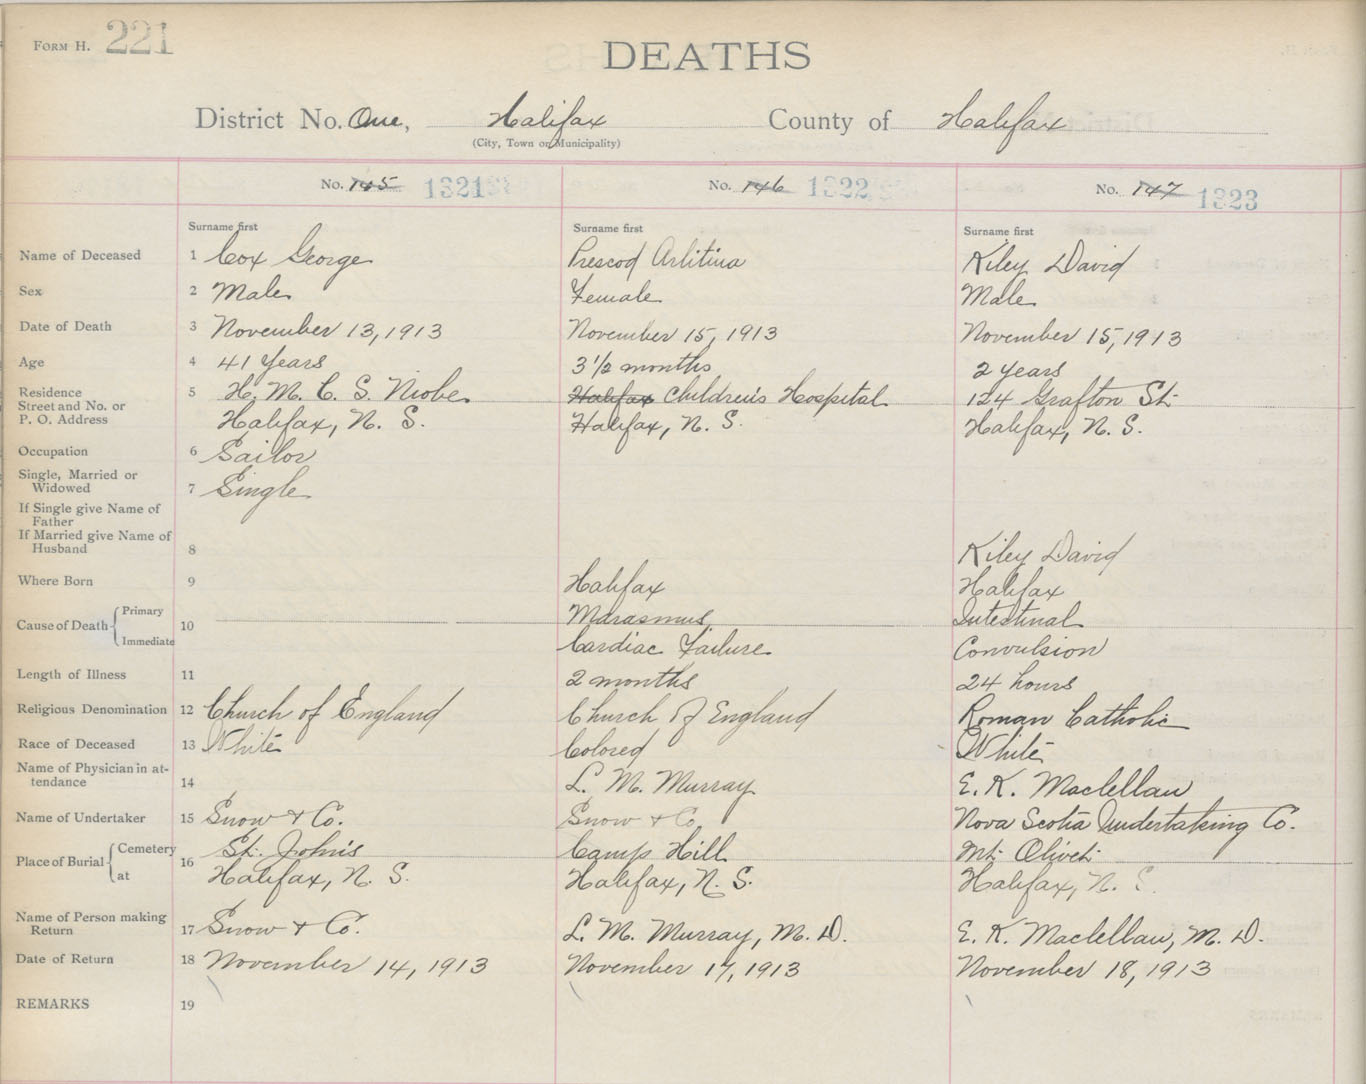 FORM H. 221
DEATHS
District No. One, Halifax County of Halifax
(City, Town or Municipality)
No. 145 1321 No. 146 1322 No. 147 1323
Surname first Surname first Surname first
Name of Deceased 1 Cox George Prescod Arlitina Kiley David
Sex 2 Male Female Male
Date of Death 3 November 13, 1913 November 15, 1913 November 15, 1913
Age 4 41 Years 3 1/2 months 2 years
Residence 5 H. M. C. S. Niobe Halifax Children's Hospital 124 Grafton St.
Street and No. or
P. O. Address Halifax, N. S. Halifax, N. S. Halifax, N. S.
Occupation 6 Sailor
Single, Married or
Widowed 7 Single
If Single give Name of
Father
If Married give Name of
Husband 8 Kiley David
Where Born 9 Halifax Halifax
Cause of Death Primary 10 Marasmus Intestinal
Immediate Cardiac Failure Convulsion
Length of Illness 11 2 months 24 hours
Religious Denomination 12 Church of England Church of England Roman Catholic
Race of Deceased 13 White Colored White
Name of Physician in at-
tendance 14 L. M. Murray E. K. Maclellan
Name of Undertaker 15 Snow & Co. Snow & Co. Nova Scotia Undertaking Co.
Place of Burial Cemetery 16 St. John's Camp Hill Mt. Olivet
at Halifax, N. S. Halifax, N. S. Halifax, N. S.
Name of Person making
Return 17 Snow & Co. L. M. Murray, M. D. E. K. Maclellan, M. D.
Date of Return 18 November 14, 1913 November 17, 1913 November 18, 1913
REMARKS 19